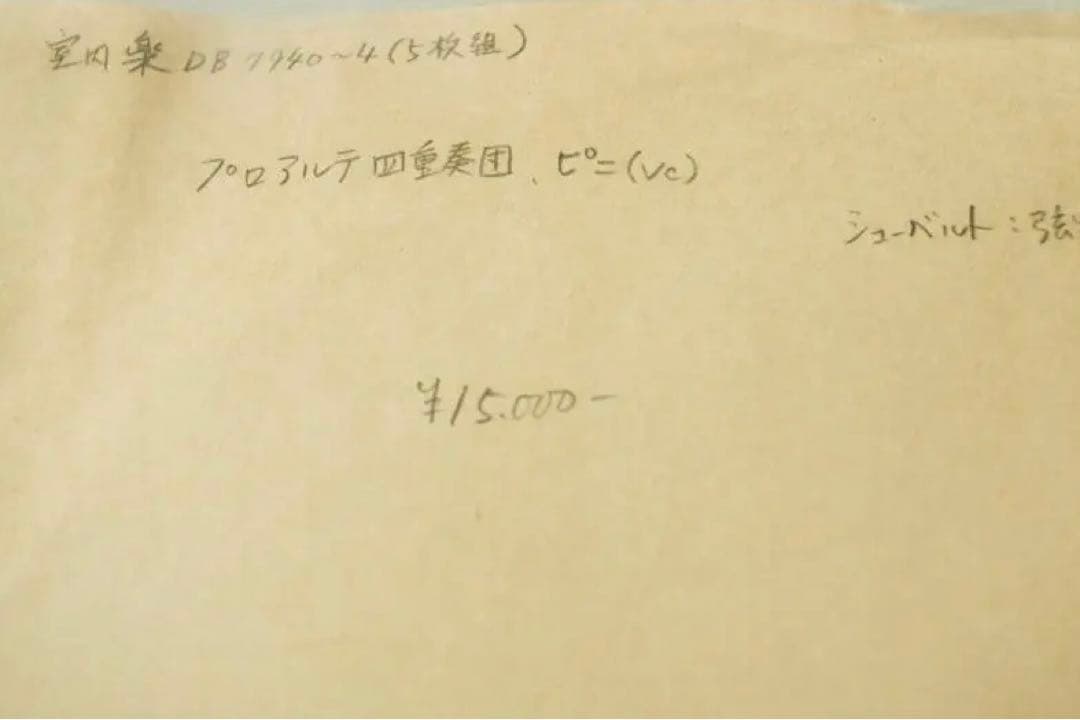 室内楽 DB 7940~4(5枚組)
プロアルテ四重奏団、ピニ(Vc)
シューベルト:弦
¥15.000-